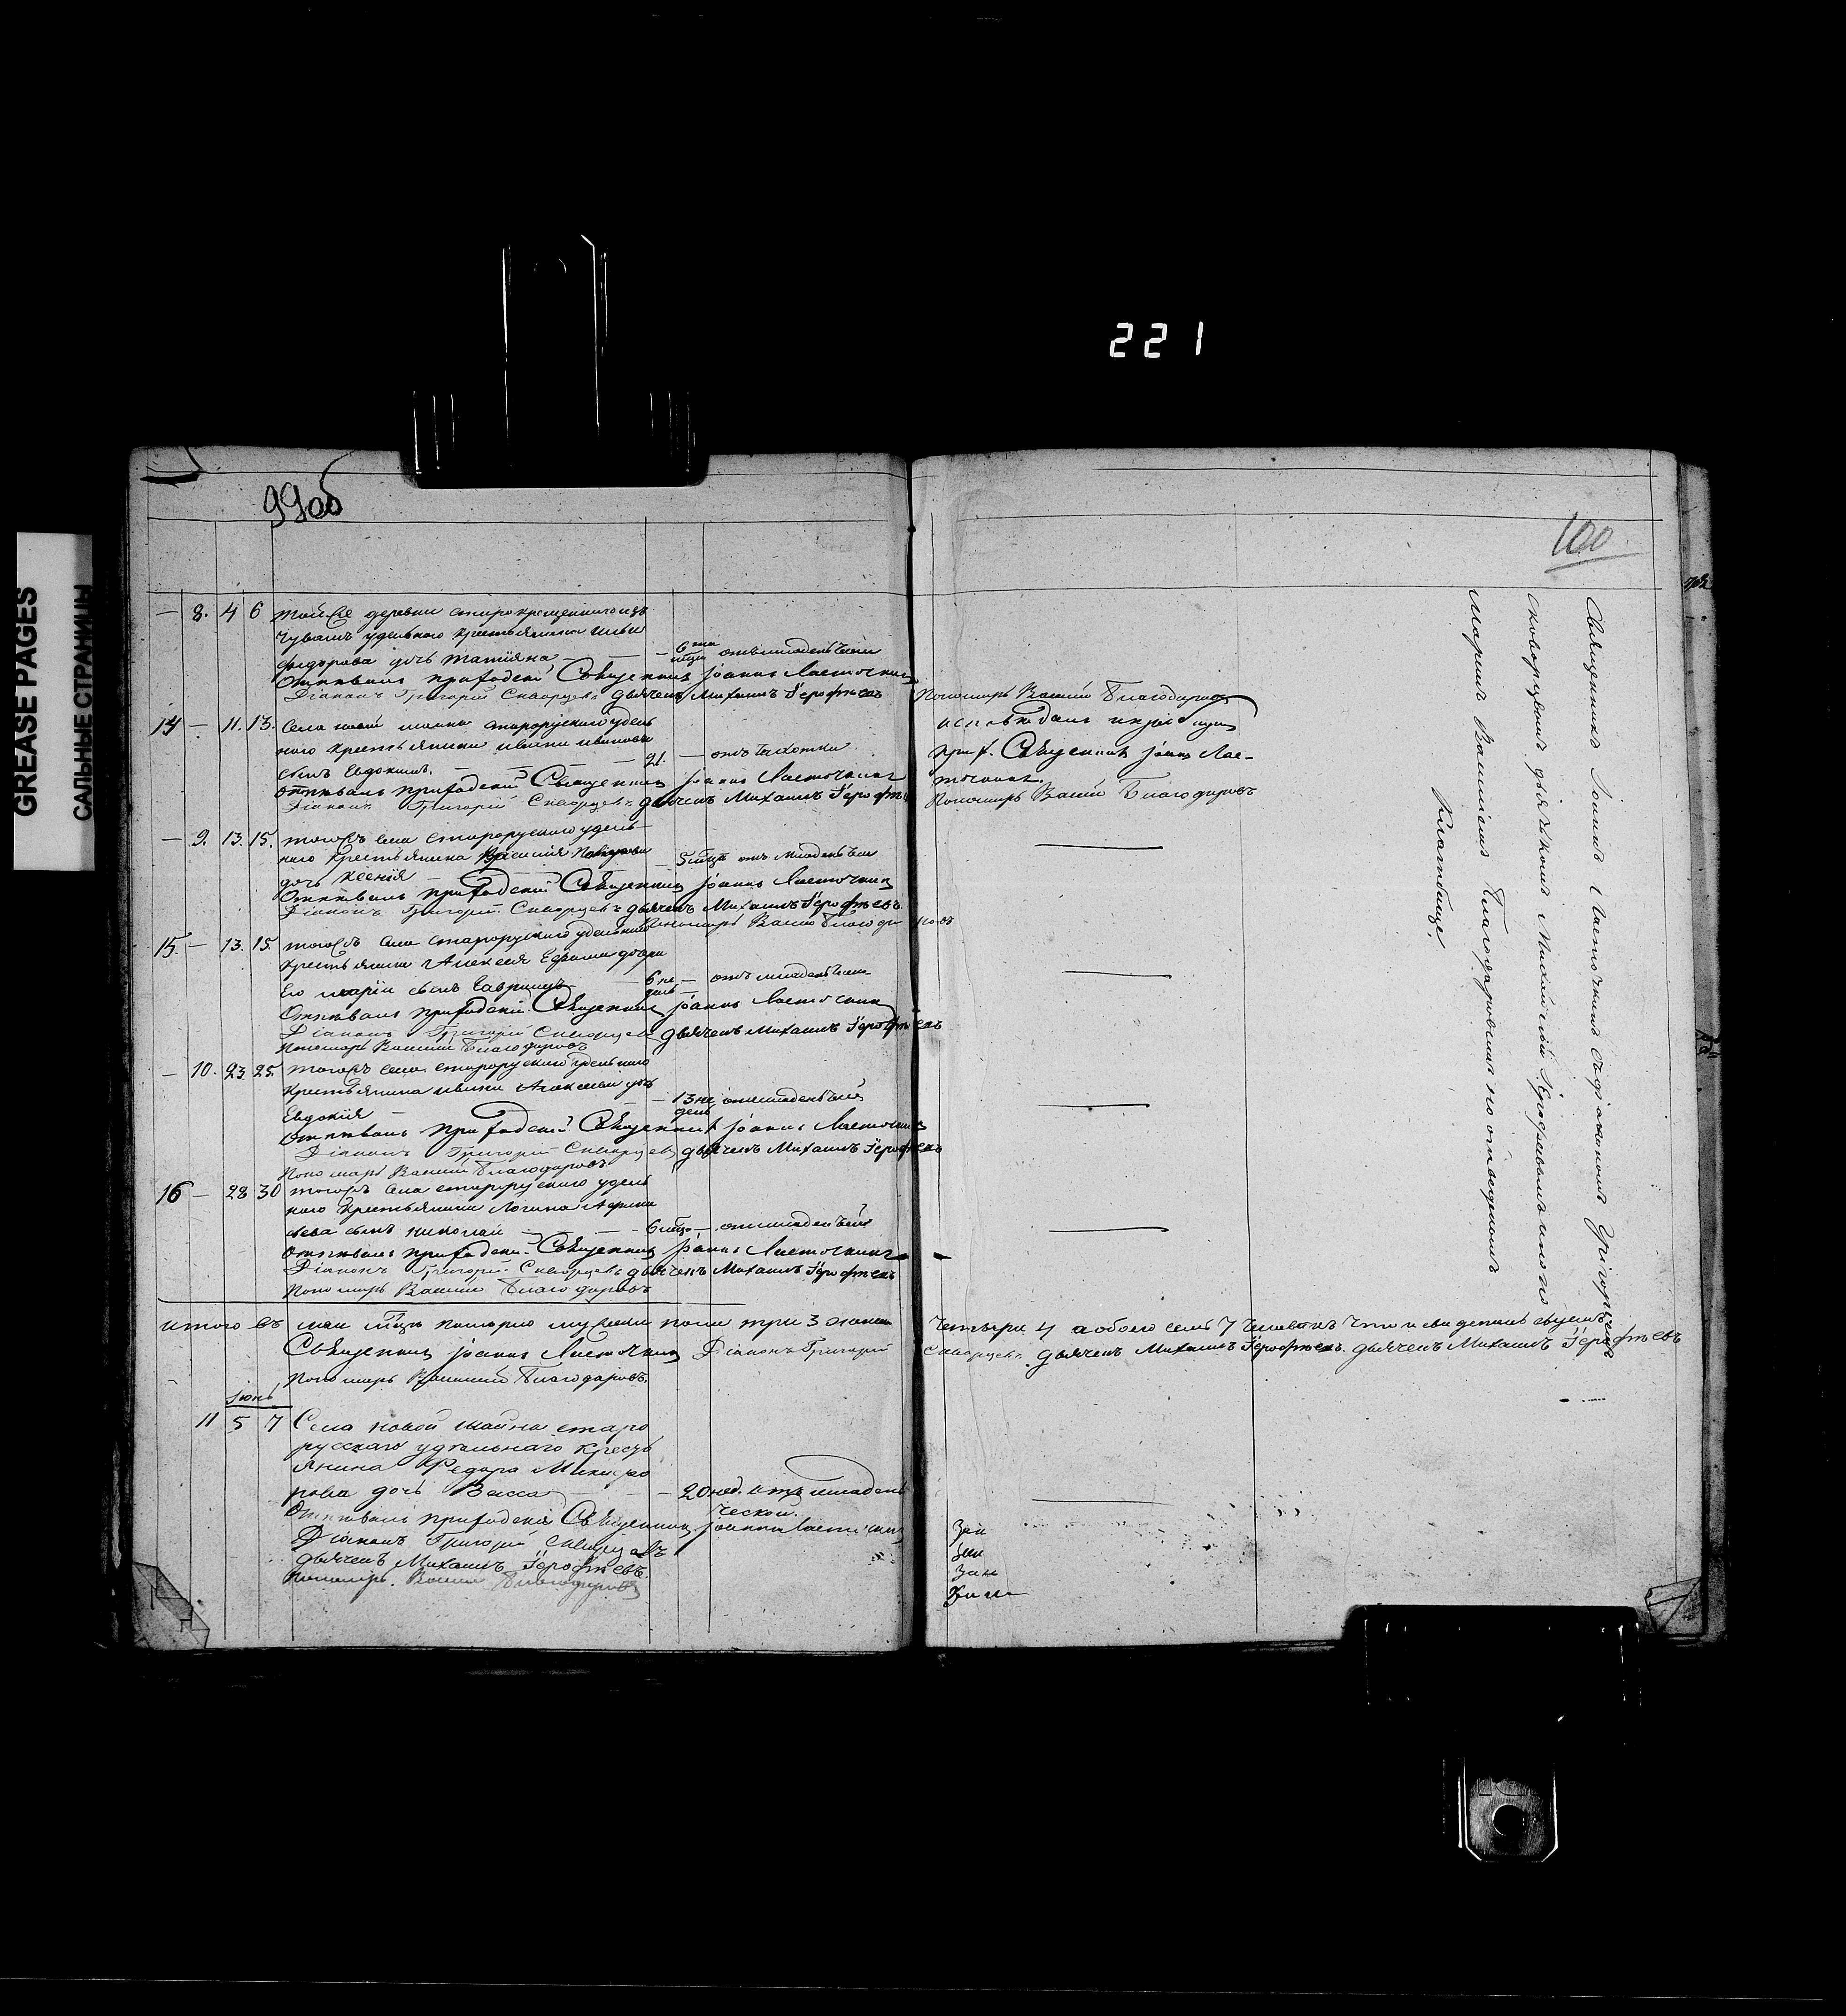 221
GREASE PAGES
САЛЬНЫЕ СТРАНИЦЫ
99об
100
— 8. 4 6 Той же деревни старокрещеннаго изъ
чувашъ удельнаго крестьянина Ильи
Федорова дочь Татіяна — 6ти мцъ отъ младенчес
Отпѣвалъ приходскій Священникъ Іоаннъ Ласточкинъ
Діаконъ Григорій Скворцевъ дьячекъ Михаилъ Іерофѣевъ Пономарь Василій Благодаровъ
14 — 11. 13. Села новой маины старорускаго удель
наго крестьянина Ивана Иванова
сынъ Евдокимъ. — 21. — отъ чахотки
Отпѣвалъ приходскій Священникъ Іоаннъ Ласточкинъ
Діаконъ Григорій Скворцевъ дьячекъ Михаилъ Іерофѣ
исповѣдалъ
приХ. Священникъ Іоан Лас-
точкинъ.
Пономарь Васили Благодаровъ
— 9. 13. 15. тогожъ села старорускаго удель
наго крестьянина Василія
дочь Ксенія — 5 мцъ отъ младенчес
Отпѣвалъ приходскій Священникъ Іоаннъ Ласточкинъ
Діаконъ Григорій Скворцевъ дьячекъ Михаилъ Іерофѣевъ
Пономарь Васили Благодаровъ
15. — 13. 15. тогожъ села старорускаго удельнаго
крестьянина Алексея Ефрима дочери
Его Маріи сынъ Гавриилъ — 6 не дель — отъ младенчес
Отпѣвалъ приходскій Священникъ Іоаннъ Ласточкин
Діаконъ Григорій Скворцевъ дьячекъ Михаилъ Іерофѣевъ
Пономарь Василии Благодаровъ
— 10. 23. 25. тогожъ села старорускаго удельнаго
крестьянина Ивана Алексеева дочь
Евдокія — 13 не дель от младенчес
Отпѣвалъ приходскій Священникъ Іоаннъ Ласточкинъ
Діаконъ Григорій Скворцевъ дьячекъ Михаилъ Іерофѣевъ
Пономарь Василій Благодаровъ
16 — 28 30 тогожъ села старорускаго удель
наго крестьянина Логина Афона
сева сынъ Николай — 6 мцъ — от младенчес
Отпѣвалъ приходскій Священникъ Іоаннъ Ласточкинъ
Діаконъ Григорій Скворцевъ дьячекъ Михаилъ Іерофѣевъ
Пономарь Василій Благодаровъ
итого въ маи мцъ померло мужеска пола три 3 женска четыри 4 а обоего семь 7 человекъ что и свидетельствуемъ
Священникъ Іоаннъ Ласточкинъ Діаконъ Григорий Скворцевъ дьячекъ Михаилъ Іерофѣевъ. дьячекъ Михаилъ Іерофѣевъ
Пономарь Василий Благодаровъ.
Іюнь
11 5 7 Села новой Майны старо
русскаго удѣльнаго кресть
янина Федора Никифо
рова дочь Васса — 20 нед. отъ младен
ческой.
Отпѣвалъ приходскій Священникъ Іоаннъ Ласточкинъ
Діаконъ Григорій Скворцевъ
дьячекъ Михаилъ Іерофѣевъ.
Пономарь. Василій Благодаровъ
Священникъ Іоаннъ Ласточкинъ съ діакономъ Григорьемъ
Скворцевымъ дьячкомъ Михайлой Іерофеевымъ и поно
маремъ Василіемъ Благодаровымъ на отведенномъ
Кладбище.